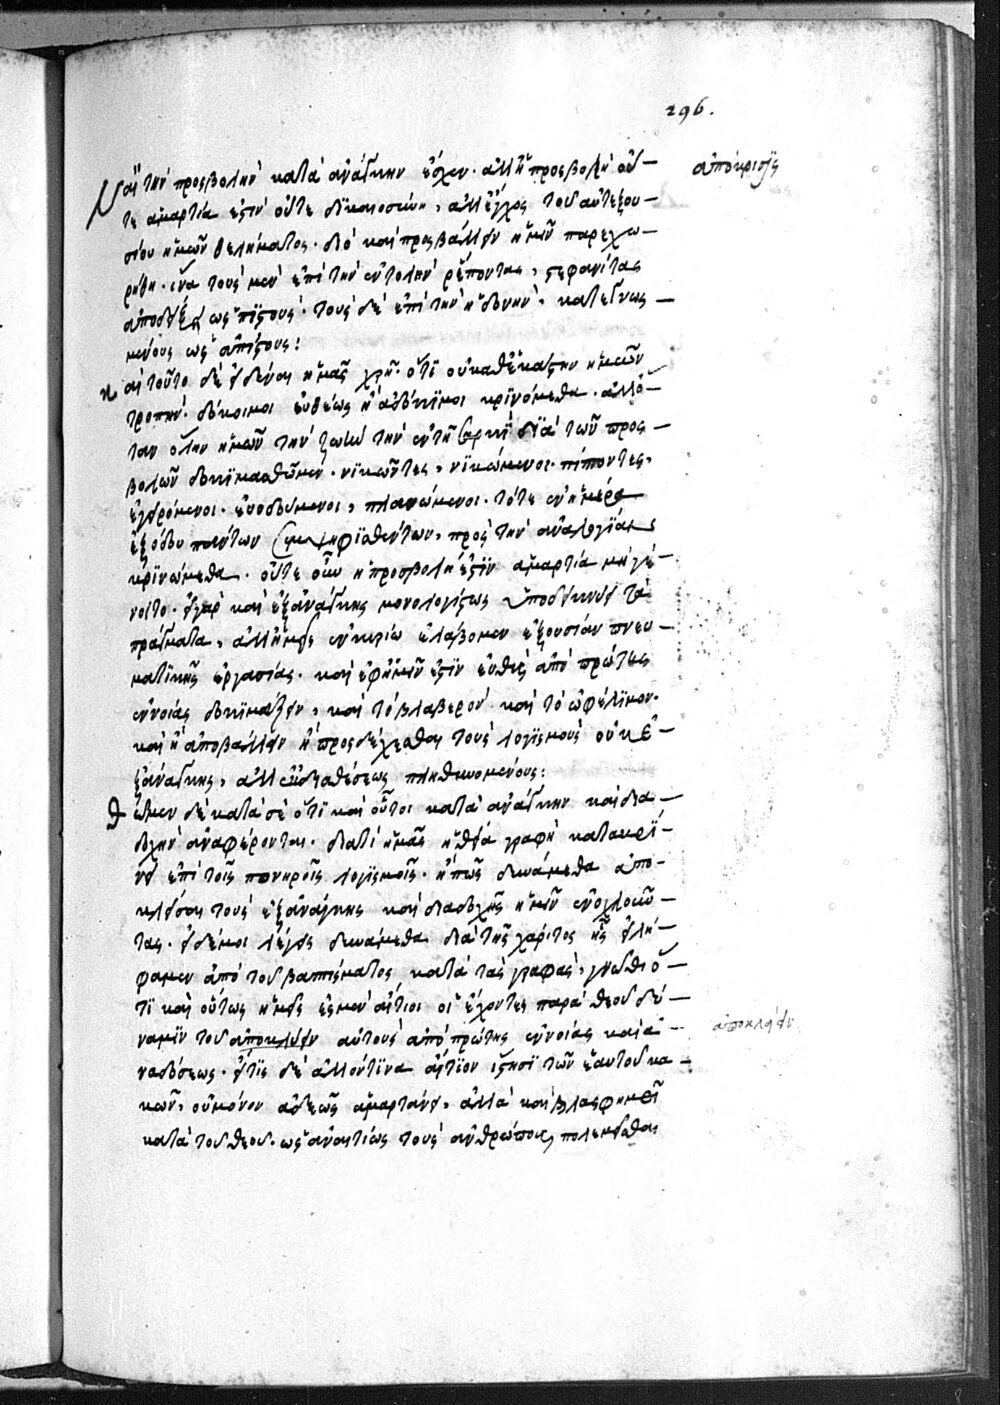 296.
ἀπόκρισϊς
Ναῒ τὴν προςβολὴν κατὰ ἀνάγκην ἔσχεν· ἀλλ' ἡ προςβολὴ οὔ-
τε ἁμαρτία ἐστὶν οὔτε δικαιοσύνη, ἀλλ' ἔλεγχος τοῦ αὐτεξου-
σίου ἡμῶν θελήματος· διὸ καὶ προςβάλλειν ἡμῖν παρεχω-
ρήθη· ἵνα τοὺς μὲν ἐπὶ τὴν ἐντολὴν ρέποντας, στεφανίτας
ἀποδείξῃ ὡς πϊστούς· τοὺς δὲ ἐπὶ τὴν ἡδονὴν· κατεγνωσ-
μένους ὡς ἀπίστους:
καὶ τοῦτο δὲ εἰδέναι ἡμᾶς χρή· ὅτϊ οὐ καθ' ἑκάστην ἡμῶν
τροπὴν· δόκιμοι εὐθέως ἢ ἀδόκιμοι κρϊνόμεθα· ἀλλ' ὅ-
ταν ὅλην ἡμῶν τὴν ζωὴν τὴν ἐν τῇ σαρκῒ διὰ τῶν προς-
βολῶν δοκιμασθῶμεν· νϊκῶντες, νϊκώμενοι· πίπτοντες,
ἐγειρόμενοι· εὐοδούμενοι, πλανώμενοι· τότε ἐν ἡμέρα
ἐξόδου πάντων συμψηφϊσθέντων, πρὸς τὴν ἀναλογίαν
κρϊνώμεθα· οὔτε οὖν ἡ προσβολὴ ἐστῒν ἁμαρτία μὴ γέ-
νοιτο· εἰ γὰρ καὶ ἐξ ἀνάγκης μονολογίστως ὑποδείκνυσι τὰ
πράγματα, ἀλλ' ἡμεῖς ἐν κυρίω ἐλάβομεν ἐξουσίαν πνευ-
ματικῆς ἐργασίας· καὶ ἐφ' ἡμῖν ἐστῒν εὐθὺς ἀπὸ πρώτης
ἐννοίας δοκϊμάζειν, καὶ τὸ βλαβερὸν καὶ τὸ ὠφέλϊμον·
καὶ ἢ ἀποβάλλειν ἢ προςδέχεσθαι τοὺς λογϊσμοὺς οὐκ ἐ-
ξ ἀνάγκης, ἀλλ' ἐκ διαθέσεως πληθυνομένους:
θῶμεν δὲ κατὰ σὲ ὅτϊ καὶ οὗτοι κατὰ ἀνάγκην καὶ δια-
δοχὴν ἀναφέρονται· διατὶ ἡμᾶς ἡ θεία γραφὴ κατακρί-
νει ἐπὶ τοῖς πονηροῖς λογϊσμοῖς· ἢ πῶς δυνάμεθα ἀπο-
κλεῖσαι τοὺς ἐξ ἀνάγκης καὶ διαδοχῆς ἡμῖν ἐνοχλοῦν-
τας· εἰ δέ μοι λέγεις δυνάμεθα διὰ τῆς χάριτος ἧς εἰλή-
φαμεν ἀπὸ τοῦ βαπτίσματος κατὰ τὰς γραφὰς, γνῶθι ὅ-
τϊ καὶ οὕτως ἡμεῖς ἐσμὲν αἴτιοι οἱ ἔχοντες παρὰ θεοῦ δύ-
ναμϊν τοῦ ἀποκλείειν αὐτοὺς ἀπὸ πρώτης ἐννοίας καὶ ἀ-
ναδόσεως· εἴ τϊς δὲ ἄλλον τϊνὰ αἴτϊον ἵστησϊ τῶν ἑαυτοῦ κα-
κῶν, οὐ μόνον ἀδεῶς ἁμαρτάνει, ἀλλὰ καὶ βλασφημεῖ
κατὰ τοῦ θεοῦ· ὡς ἀναιτίως τοὺς ἀνθρώπους πολεμεῖσθαι
ἀποκλείειν